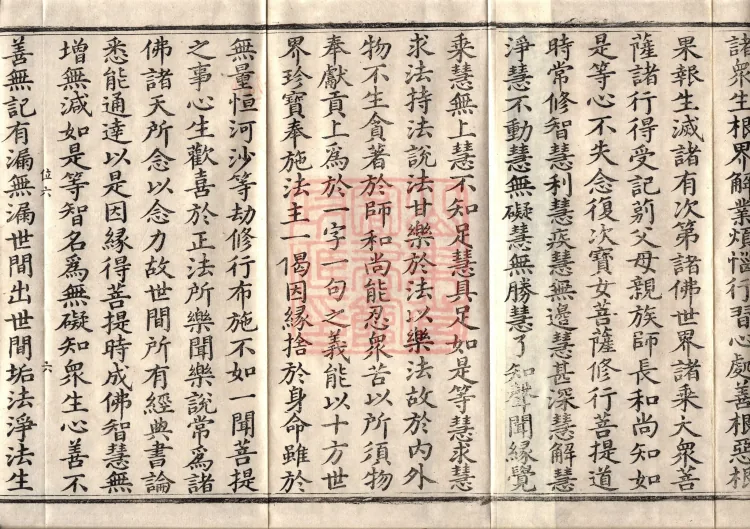 諸衆生根界解業煩惱行習心處善根惡根
果報生滅諸有次第諸佛世界諸乘大衆菩
薩諸行得受記莂父母親族師長和尚知如
是等心不失念復次寶女菩薩修行菩提道
時常修智慧利慧疾慧無邊慧甚深慧解慧
淨慧不動慧無礙慧無勝慧了知聲聞緣覺
乘慧無上慧不知足慧具足如是等慧求慧
求法持法說法甘樂於法以樂法故於內外
物不生貪著於師和尚能忍衆苦以所須物
奉獻貢上爲於一字一句之義能以十方世
界珍寶奉施法主一偈因緣捨於身命雖於
無量恒河沙等劫修行布施不如一聞菩提
之事心生歡喜於正法所樂聞樂說常爲諸
佛諸天所念以念力故世間所有經典書論
悉能通達以是因緣得菩提時成佛智慧無
增無減如是等智名爲無礙知衆生心善不
位六 六
善無記有漏無漏世間出世間垢法淨法生